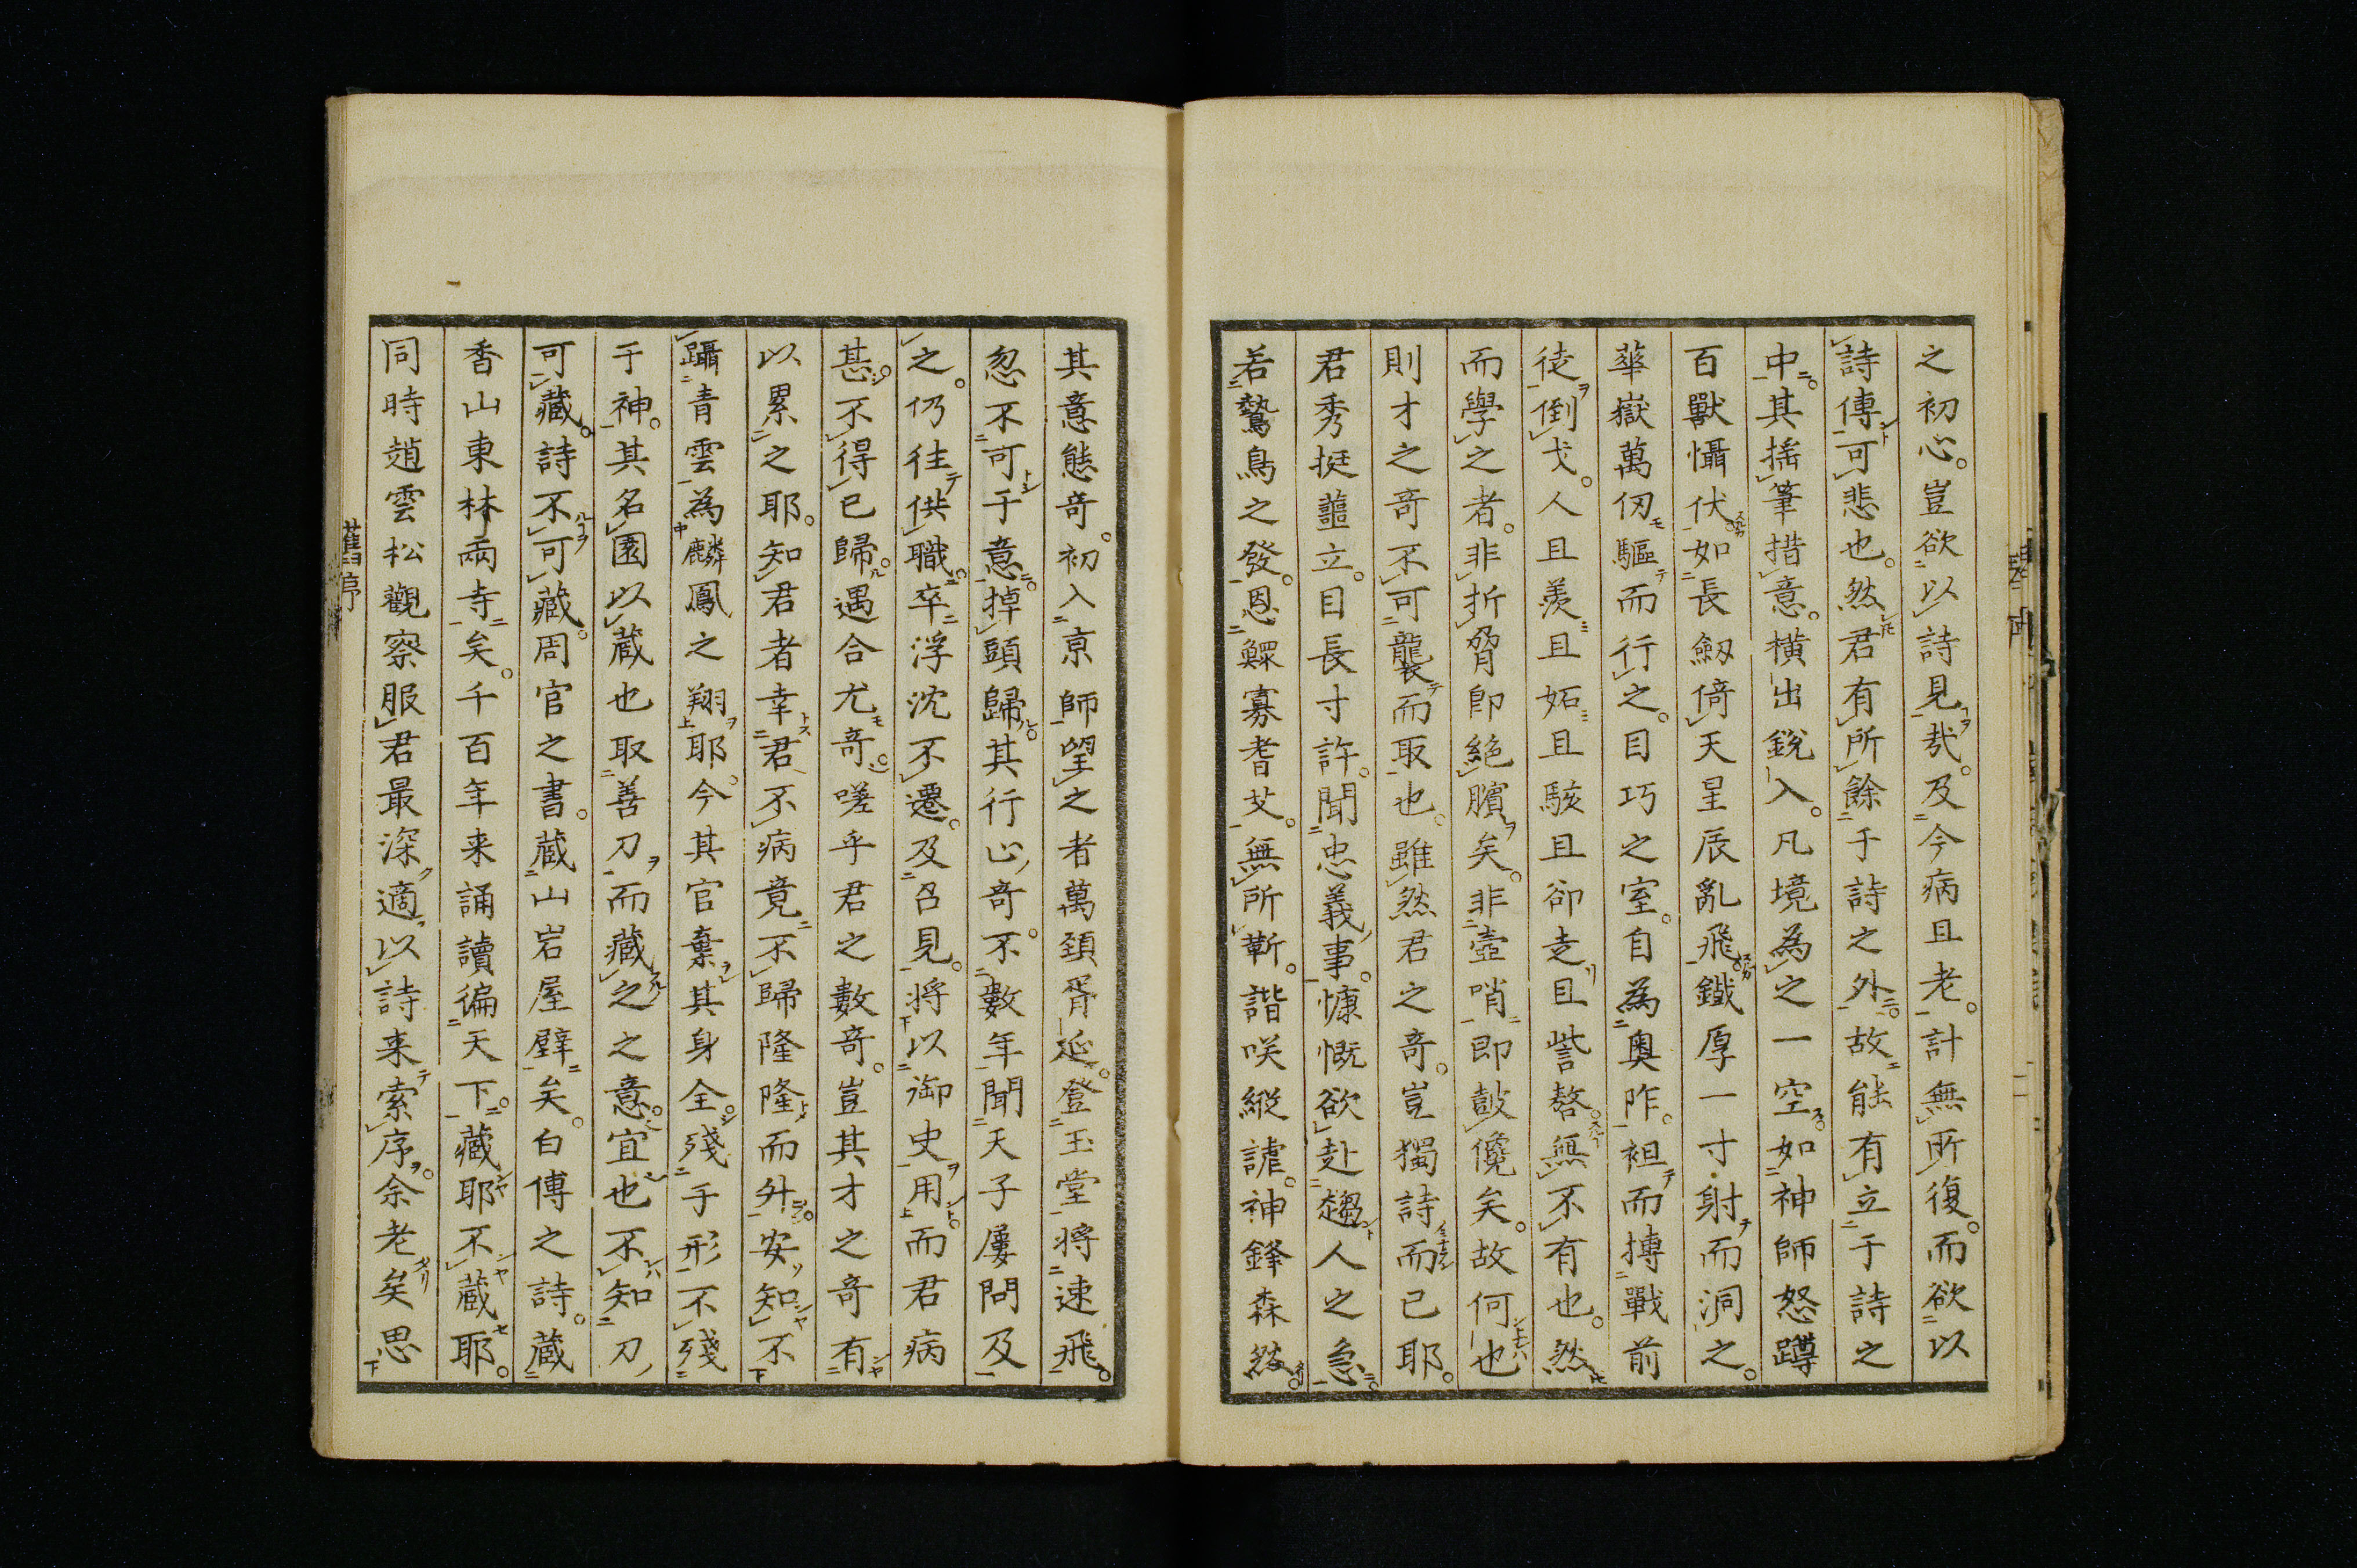 之初心豈欲以詩見哉及今病且老計無所復而欲以
詩傳可悲也然君有所餘于詩之外故能有立于詩之
中其搖筆措意橫出銳入凡境為之一空如神師怒蹲
百獸懾伏如長劔倚天星辰亂飛鐵厚一寸射而洞之
華嶽萬仞驅而行之目巧之室自為奧阼袒而搏戰前
徒倒戈人且羨且妬且駭且卻走且訾謷無不有也然
而學之者非折脅卽絕臏矣非壺哨即鼓儳矣故何也
則才之竒不可襲而取也雖然君之竒豈獨詩而已耶
君秀挺蘁立目長寸許聞忠義事慷慨欲赴趨人之急
若鷙鳥之發恩鰥寡耆艾無所靳諧咲縱謔神鋒森然
其意態竒初入亰師望之者萬頸胥延登玉堂將速飛
忽不可于意掉頭歸其行止竒不數年聞天子屢問及
之仍往供職卒浮沈不遷及召見将以御史用而君病
甚不得已歸遇合尤竒嗟乎君之數竒豈其才之竒有
以累之耶知君者幸君不病竟不歸隆隆而升安知不
躡青雲為麟鳳之翔耶今其官棄其身全殘于形不殘
于神其名園以藏也取善刀而藏之之意宜也不知刀
可藏詩不可藏周官之書藏山岩屋壁矣白傅之詩藏
香山東林兩寺矣千百年来誦讀徧天下藏耶不藏耶
同時趙雲松觀察服君最深適以詩来索序余老矣思
舊序